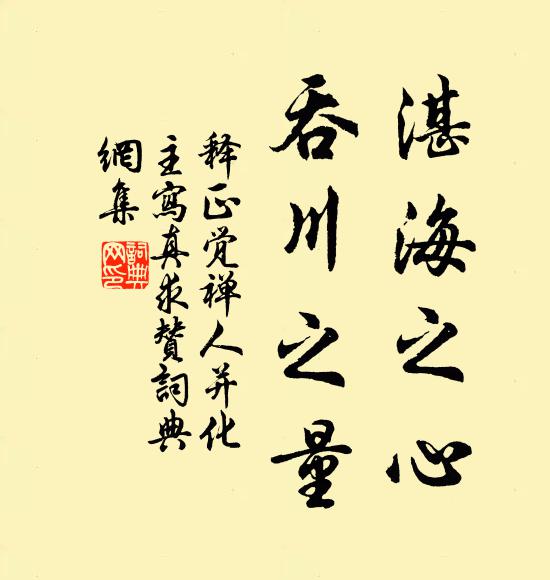 湛海之心
吞川之量
释正觉禅人并化
主寫真求贊詞典
網集
詞典
网印